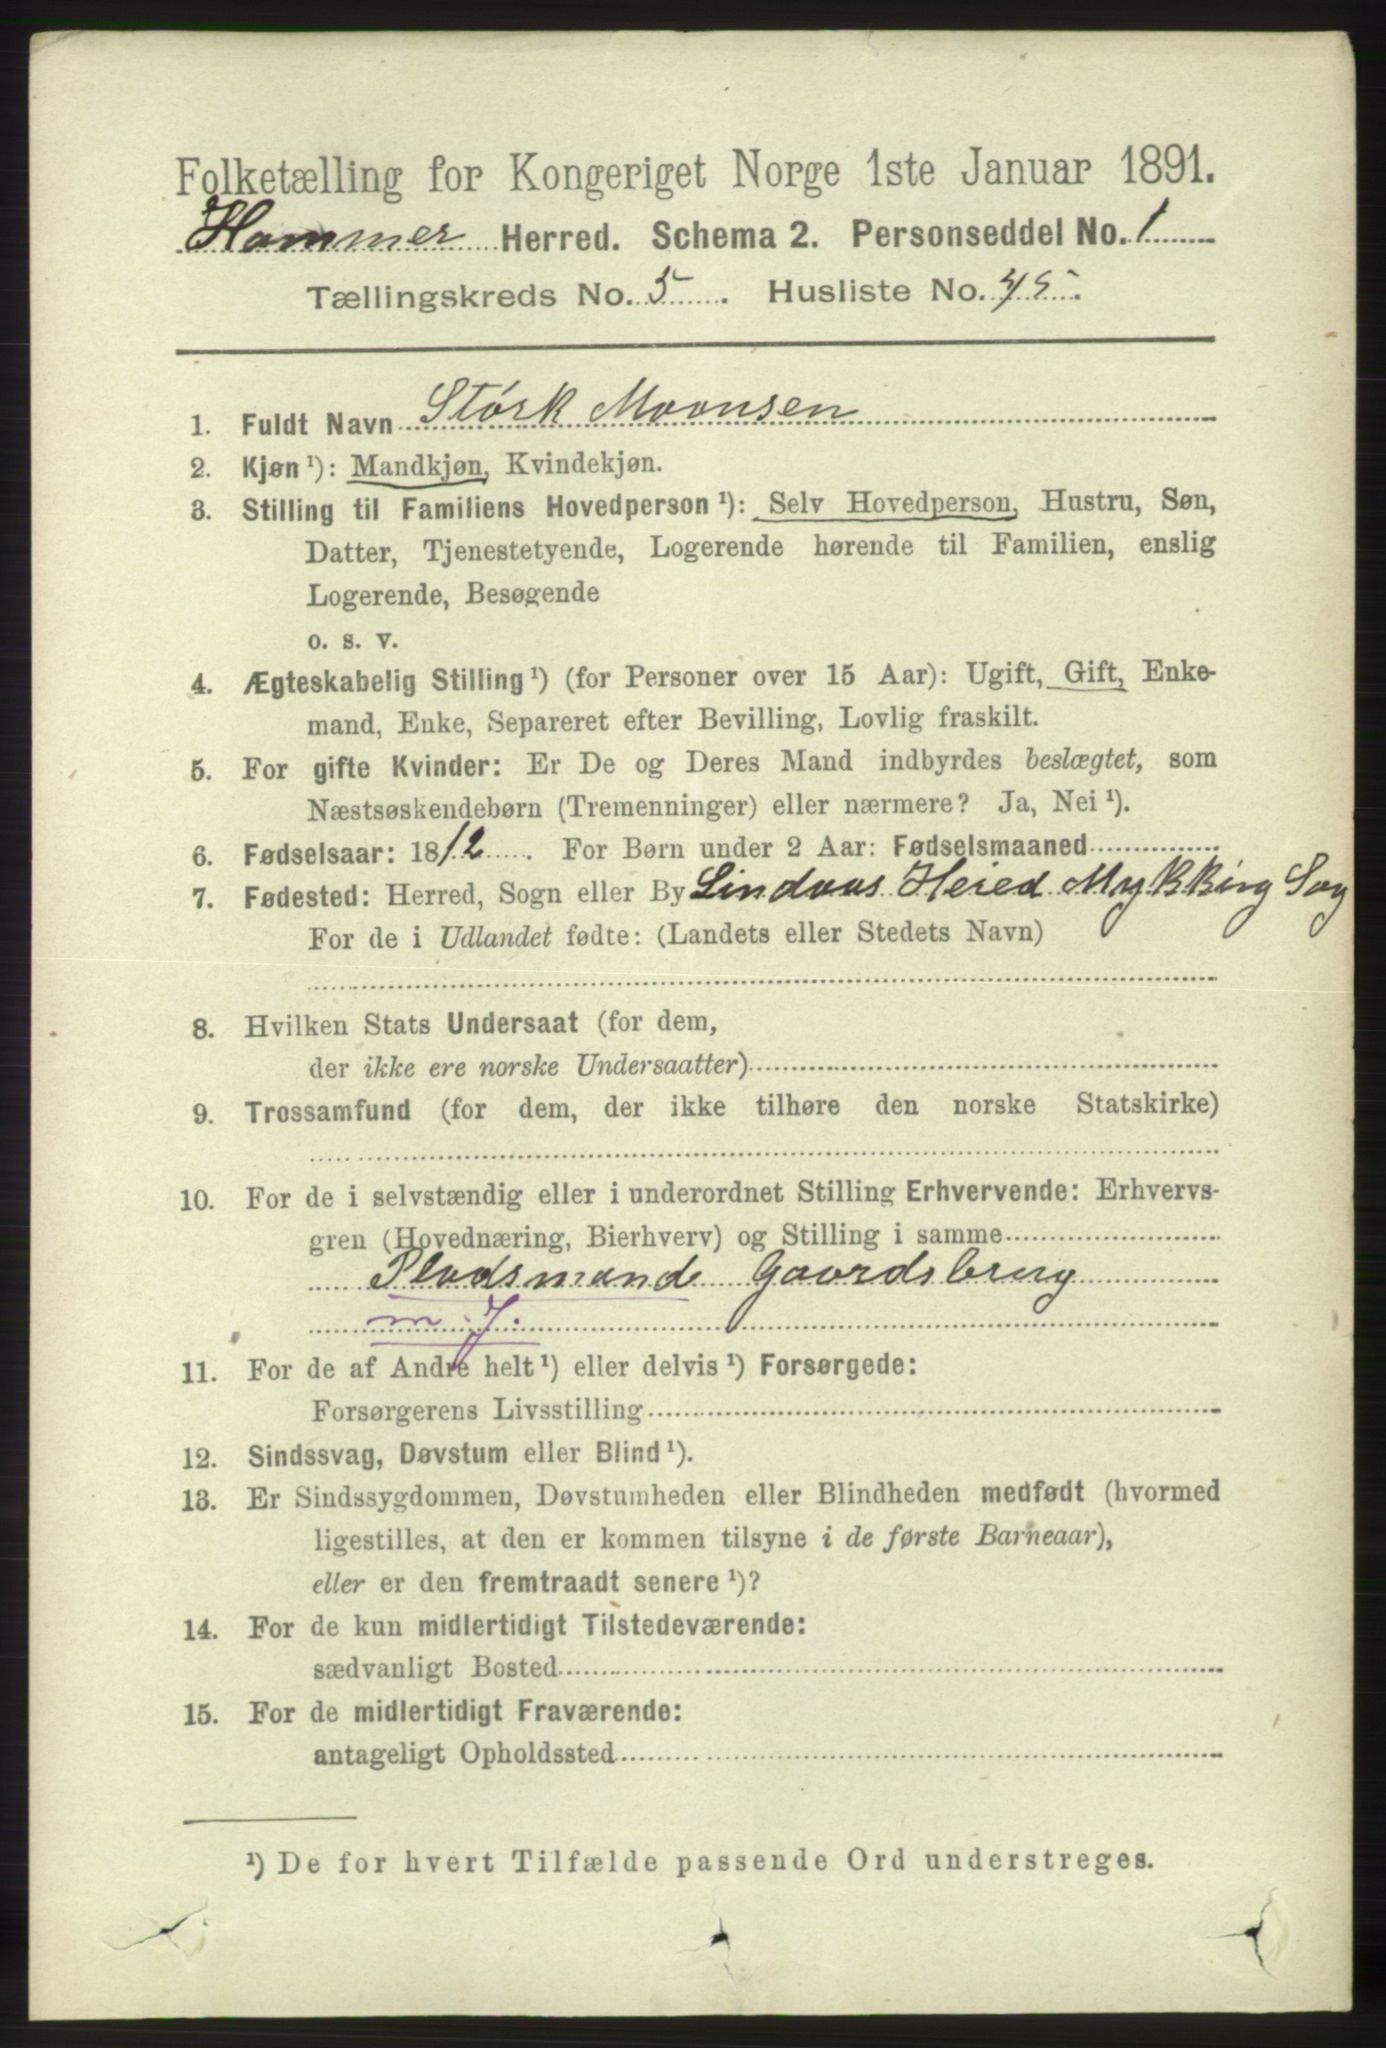 Folketælling for Kongeriget Norge 1ste Januar 1891.
Hammer Herred. Schema 2. Personseddel No. 1
Tællingskreds No. 5. Husliste No. 45.
1. Fuldt Navn Störk Moonsen
2. Kjøn ¹): Mandkjøn, Kvindekjøn.
3. Stilling til Familiens Hovedperson ¹): Selv Hovedperson, Hustru, Søn,
Datter, Tjenestetyende, Logerende hørende til Familien, enslig
Logerende, Besøgende
o. s. v.
4. Ægteskabelig Stilling ¹) (for Personer over 15 Aar): Ugift, Gift, Enke-
mand, Enke, Separeret efter Bevilling, Lovlig fraskilt.
5. For gifte Kvinder: Er De og Deres Mand indbyrdes beslægtet, som
Næstsøskendebørn (Tremenninger) eller nærmere? Ja, Nei ¹).
6. Fødselsaar: 1812. For Børn under 2 Aar: Fødselsmaaned
7. Fødested: Herred, Sogn eller By Lindaas Heied Mykking Sog
For de i Udlandet fødte: (Landets eller Stedets Navn)
8. Hvilken Stats Undersaat (for dem,
der ikke ere norske Undersaatter)
9. Trossamfund (for dem, der ikke tilhøre den norske Statskirke)
10. For de i selvstændig eller i underordnet Stilling Erhvervende: Erhvervs-
gren (Hovednæring, Bierhverv) og Stilling i samme
Pladsmand Gaardsbrug
m. J.
11. For de af Andre helt ¹) eller delvis ¹) Forsørgede:
Forsørgerens Livsstilling
12. Sindssvag, Døvstum eller Blind ¹).
13. Er Sindssygdommen, Døvstumheden eller Blindheden medfødt (hvormed
ligestilles, at den er kommen tilsyne i de første Barneaar),
eller er den fremtraadt senere ¹)?
14. For de kun midlertidigt Tilstedeværende:
sædvanligt Bosted
15. For de midlertidigt Fraværende:
antageligt Opholdssted
¹) De for hvert Tilfælde passende Ord understreges.